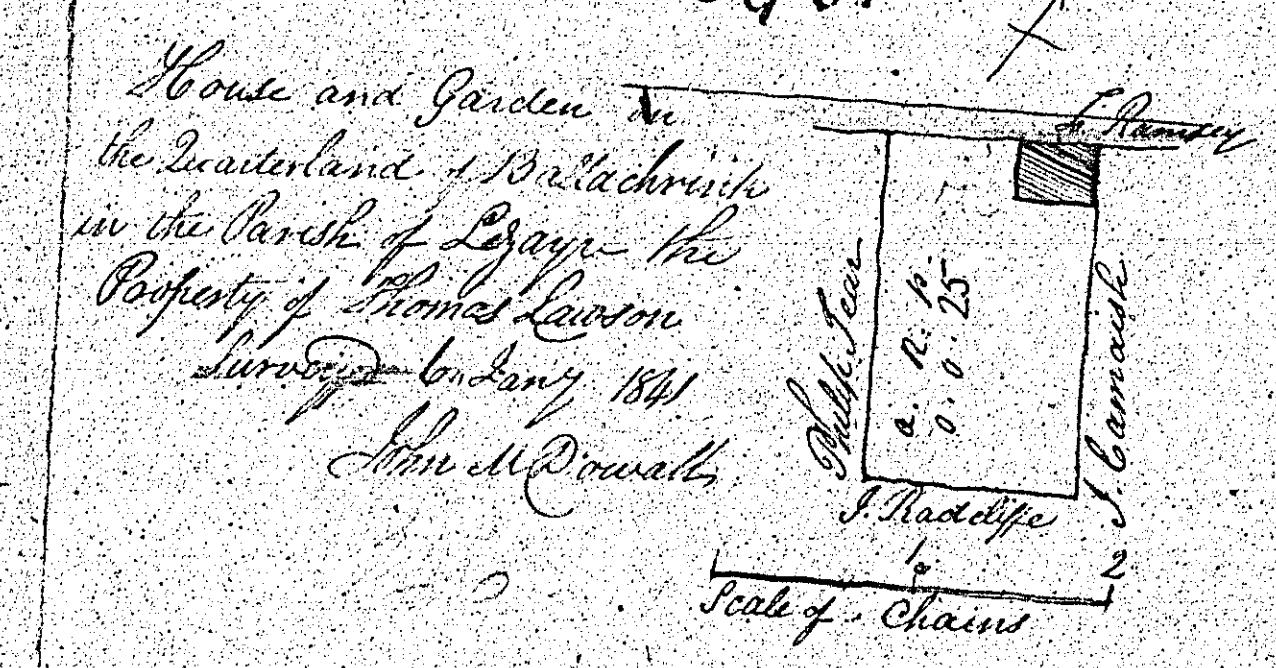 House and Garden in
the Quarterland of Ballachrink
in the Parish of Lezayre the
Property of Thomas Lawson
Surveyed 6 Jany 1841
John McDowall
Ramsey
Philip Tear
a. R. p.
0. 0. 25
J. Camaish
J. Radcliffe
1
2
Scale of Chains